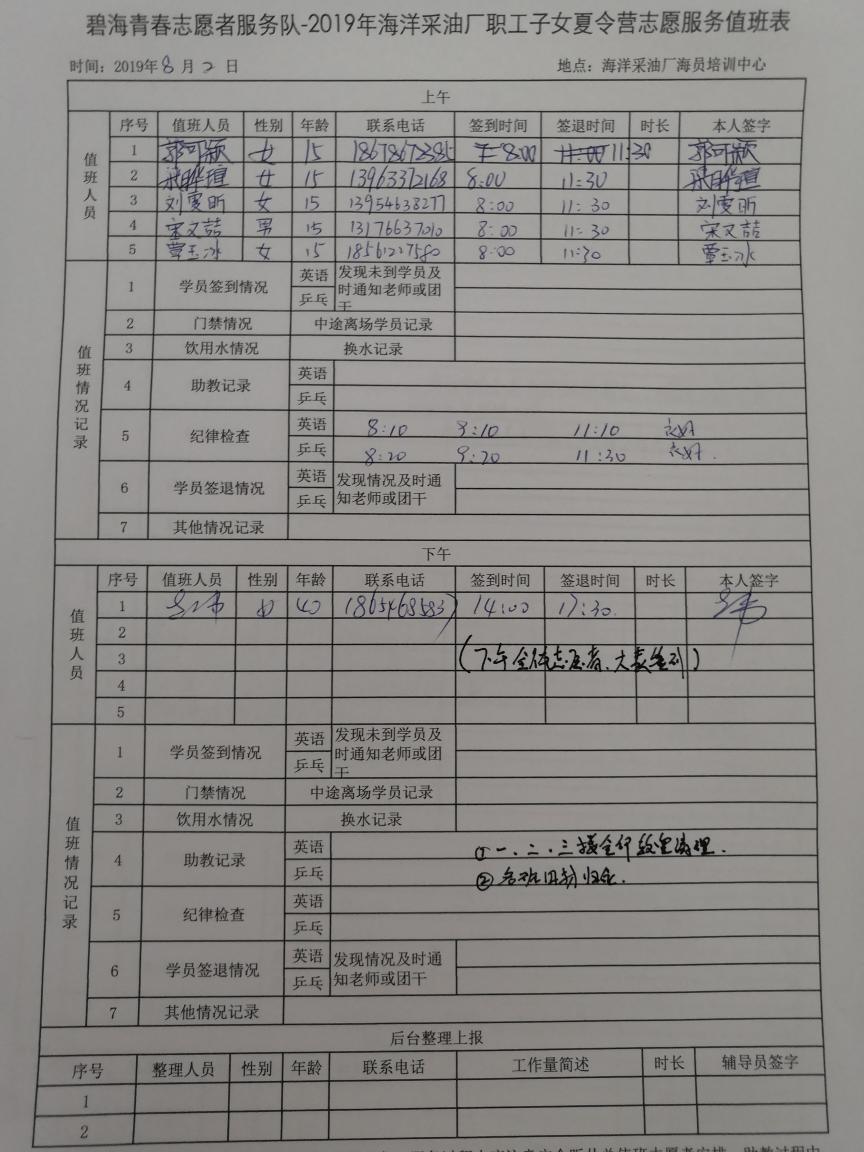 碧海青春志愿者服务队-2019年海洋采油厂职工子女夏令营志愿服务值班表
时间：2019年8月2日 地点：海洋采油厂海员培训中心
上午
值班人员
序号 值班人员 性别 年龄 联系电话 签到时间 签退时间 时长 本人签字
1 郭可颖 女 15 8:00 11:30 郭可颖
2 女 15 13963372168 8:00 11:30
3 刘雯昕 女 15 13954638277 8:00 11:30 刘雯昕
4 宋文喆 男 15 13176637010 8:00 11:30 宋文喆
5 覃玉冰 女 15 18561227580 8:00 11:30 覃玉冰
值班情况记录
1 学员签到情况 英语 乒乓 发现未到学员及时通知老师或团干
2 门禁情况 中途离场学员记录
3 饮用水情况 换水记录
4 助教记录 英语 乒乓
5 纪律检查 英语 8:10 9:10 11:10 良好
乒乓 8:20 9:20 11:30 良好.
6 学员签退情况 英语 乒乓 发现情况及时通知老师或团干
7 其他情况记录
下午
值班人员
序号 值班人员 性别 年龄 联系电话 签到时间 签退时间 时长 本人签字
1 女 40 18654685837 14:00 17:30
2
3 (下午全体志愿者、大表签到)
4
5
值班情况记录
1 学员签到情况 英语 乒乓 发现未到学员及时通知老师或团干
2 门禁情况 中途离场学员记录
3 饮用水情况 换水记录
4 助教记录 英语 ①一、二、三楼全部教室清理.
乒乓 ②各班归位.
5 纪律检查 英语 乒乓
6 学员签退情况 英语 乒乓 发现情况及时通知老师或团干
7 其他情况记录
后台整理上报
序号 整理人员 性别 年龄 联系电话 工作量简述 时长 辅导员签字
1
2